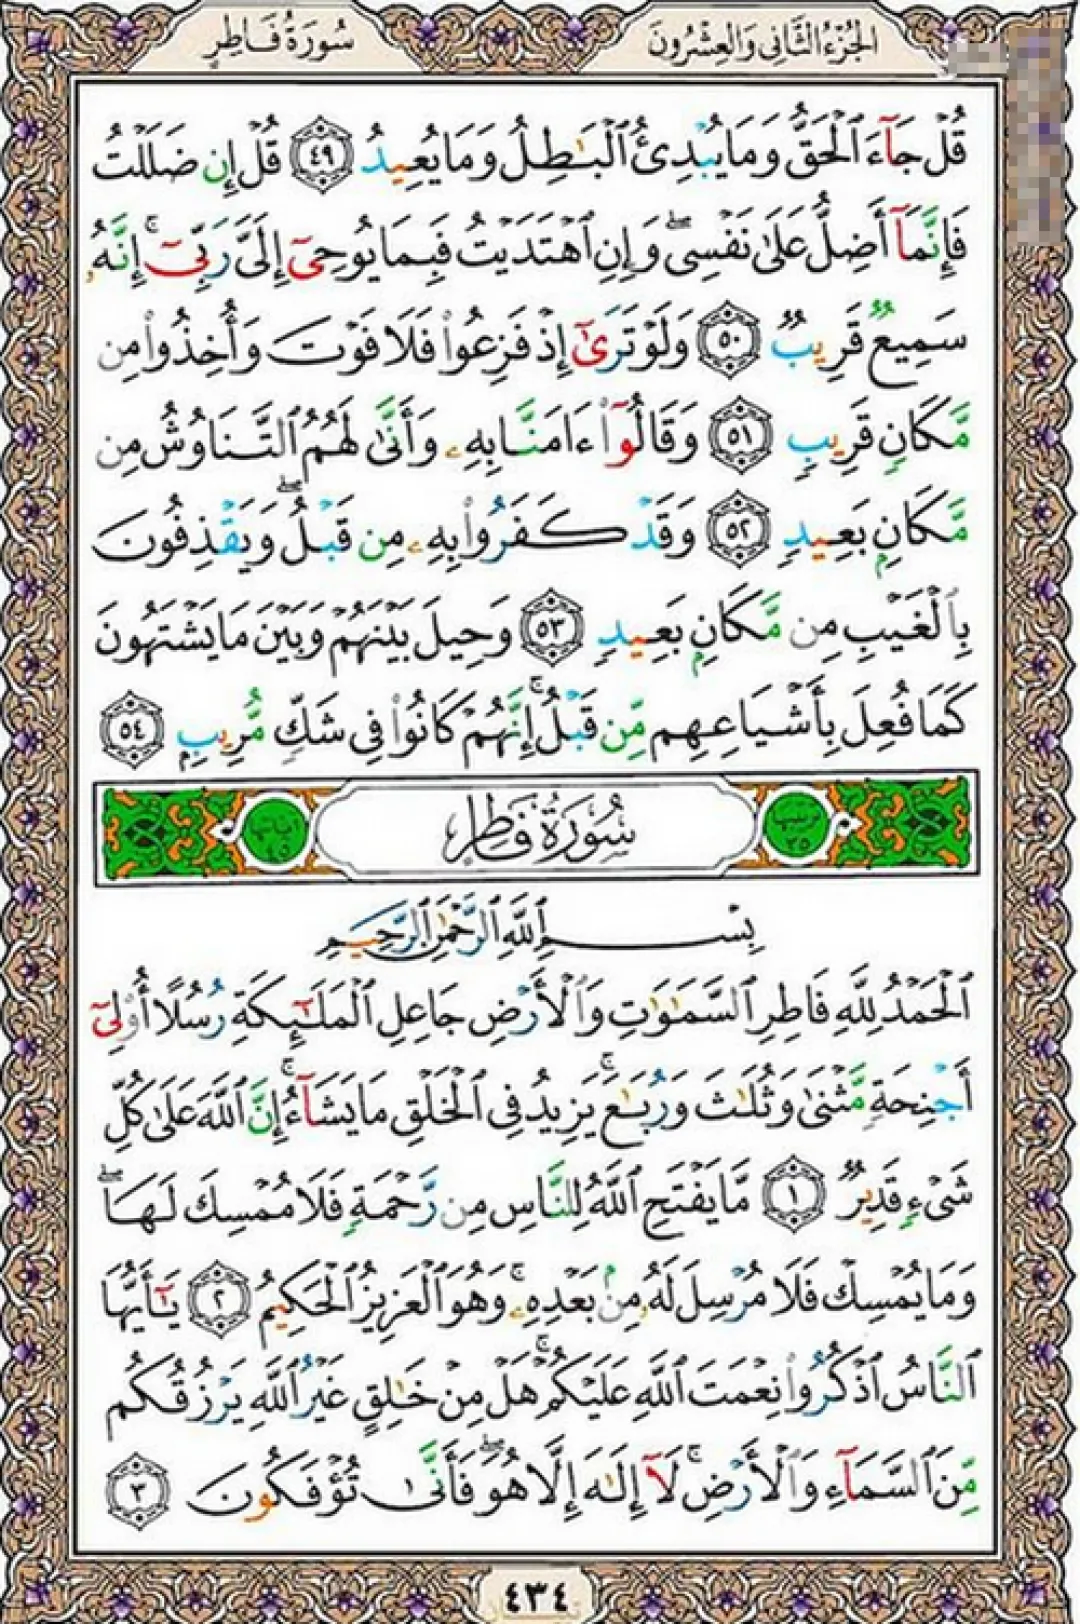 سُورَةُ فَاطِرٍ
الجُزْءُ الثَّانِي وَالعِشْرُونَ
قُلْ جَآءَ ٱلْحَقُّ وَمَا يُبْدِئُ ٱلْبَٰطِلُ وَمَا يُعِيدُ ٤٩ قُلْ إِن ضَلَلْتُ
فَإِنَّمَآ أَضِلُّ عَلَىٰ نَفْسِىۖ وَإِنِ ٱهْتَدَيْتُ فَبِمَا يُوحِىٓ إِلَىَّ رَبِّىٓۚ إِنَّهُۥ
سَمِيعٌ قَرِيبٌ ٥٠ وَلَوْ تَرَىٰٓ إِذْ فَزِعُوا۟ فَلَا فَوْتَ وَأُخِذُوا۟ مِن
مَّكَانٍ قَرِيبٍ ٥١ وَقَالُوٓا۟ ءَامَنَّا بِهِۦ وَأَنَّىٰ لَهُمُ ٱلتَّنَاوُشُ مِن
مَّكَانٍۭ بَعِيدٍ ٥٢ وَقَدْ كَفَرُوا۟ بِهِۦ مِن قَبْلُۖ وَيَقْذِفُونَ
بِٱلْغَيْبِ مِن مَّكَانٍۭ بَعِيدٍ ٥٣ وَحِيلَ بَيْنَهُمْ وَبَيْنَ مَا يَشْتَهُونَ
كَمَا فُعِلَ بِأَشْيَاعِهِم مِّن قَبْلُۚ إِنَّهُمْ كَانُوا۟ فِى شَكٍّ مُّرِيبٍۭ ٥٤
ترتيبها ٣٥
سُورَةُ فَاطِرٍ
آياتها ٤٥
بِسْمِ ٱللَّهِ ٱلرَّحْمَٰنِ ٱلرَّحِيمِ
ٱلْحَمْدُ لِلَّهِ فَاطِرِ ٱلسَّمَٰوَٰتِ وَٱلْأَرْضِ جَاعِلِ ٱلْمَلَٰٓئِكَةِ رُسُلًا أُو۟لِىٓ
أَجْنِحَةٍ مَّثْنَىٰ وَثُلَٰثَ وَرُبَٰعَۚ يَزِيدُ فِى ٱلْخَلْقِ مَا يَشَآءُۚ إِنَّ ٱللَّهَ عَلَىٰ كُلِّ
شَىْءٍ قَدِيرٌ ١ مَّا يَفْتَحِ ٱللَّهُ لِلنَّاسِ مِن رَّحْمَةٍ فَلَا مُمْسِكَ لَهَاۖ
وَمَا يُمْسِكْ فَلَا مُرْسِلَ لَهُۥ مِنۢ بَعْدِهِۦۚ وَهُوَ ٱلْعَزِيزُ ٱلْحَكِيمُ ٢ يَٰٓأَيُّهَا
ٱلنَّاسُ ٱذْكُرُوا۟ نِعْمَتَ ٱللَّهِ عَلَيْكُمْۚ هَلْ مِنْ خَٰلِقٍ غَيْرُ ٱللَّهِ يَرْزُقُكُم
مِّنَ ٱلسَّمَآءِ وَٱلْأَرْضِۚ لَآ إِلَٰهَ إِلَّا هُوَۖ فَأَنَّىٰ تُؤْفَكُونَ ٣
٤٣٤